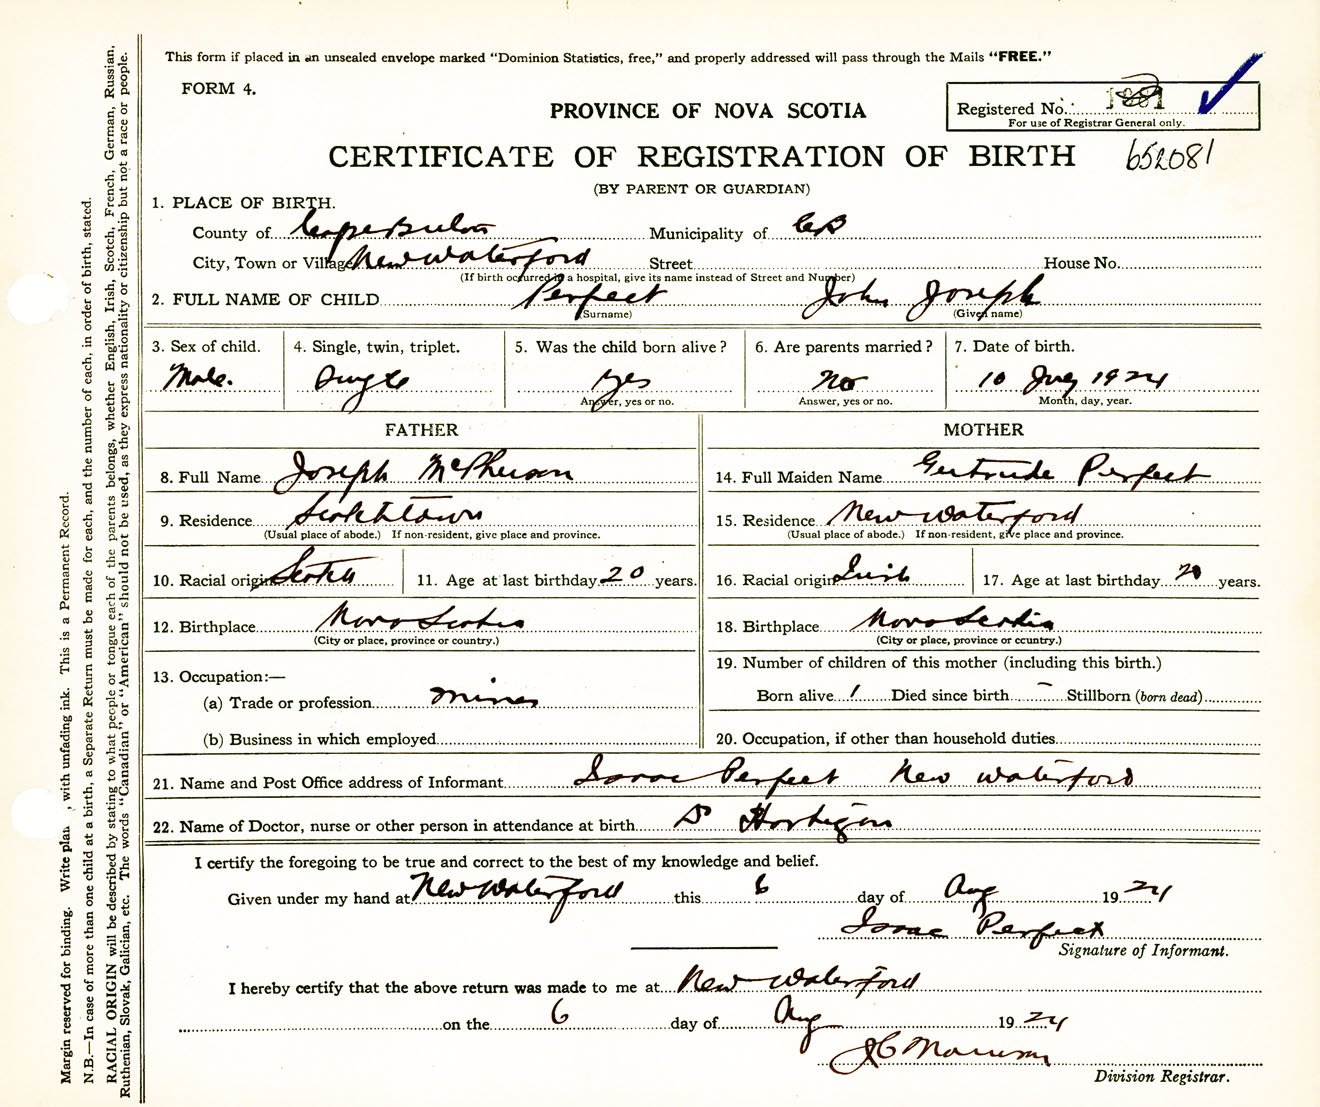 This form if placed in an unsealed envelope marked “Dominion Statistics, free,” and properly addressed will pass through the Mails “FREE.”
FORM 4.
Registered No.
For use of Registrar General only.
PROVINCE OF NOVA SCOTIA
CERTIFICATE OF REGISTRATION OF BIRTH 652081
(BY PARENT OR GUARDIAN)
1. PLACE OF BIRTH.
County of Cape Breton Municipality of CB
City, Town or Village New Waterford Street House No.
(If birth occurred in a hospital, give its name instead of Street and Number)
2. FULL NAME OF CHILD Perfect John Joseph
(Surname) (Given name)
3. Sex of child. 4. Single, twin, triplet. 5. Was the child born alive? 6. Are parents married? 7. Date of birth.
Male. Single yes No 10 July 1924
Answer, yes or no. Answer, yes or no. Month, day, year.
FATHER MOTHER
8. Full Name Joseph McPherson 14. Full Maiden Name Gertrude Perfect
9. Residence Scotchtown 15. Residence New Waterford
(Usual place of abode.) If non-resident, give place and province. (Usual place of abode.) If non-resident, give place and province.
10. Racial origin Scotch 11. Age at last birthday 20 years. 16. Racial origin Irish 17. Age at last birthday 20 years.
12. Birthplace Nova Scotia 18. Birthplace Nova Scotia
(City or place, province or country.) (City or place, province or country.)
13. Occupation:— 19. Number of children of this mother (including this birth.)
(a) Trade or profession miner Born alive 1 Died since birth – Stillborn (born dead)
(b) Business in which employed 20. Occupation, if other than household duties
21. Name and Post Office address of Informant Isaac Perfect New Waterford
22. Name of Doctor, nurse or other person in attendance at birth Dr Hartigan
I certify the foregoing to be true and correct to the best of my knowledge and belief.
Given under my hand at New Waterford this 6 day of Aug 1924
Isaac Perfect
Signature of Informant.
I hereby certify that the above return was made to me at New Waterford
on the 6 day of Aug 1924
JC Morrison
Division Registrar.
Margin reserved for binding. Write plain, with unfading ink. This is a Permanent Record.
N.B.—In case of more than one child at a birth, a Separate Return must be made for each, and the number of each, in order of birth, stated.
RACIAL ORIGIN will be described by stating to what people or tongue each of the parents belongs, whether English, Irish, Scotch, French, German, Russian,
Ruthenian, Slovak, Galician, etc. The words “Canadian” or “American” should not be used, as they express nationality or citizenship but not a race or people.